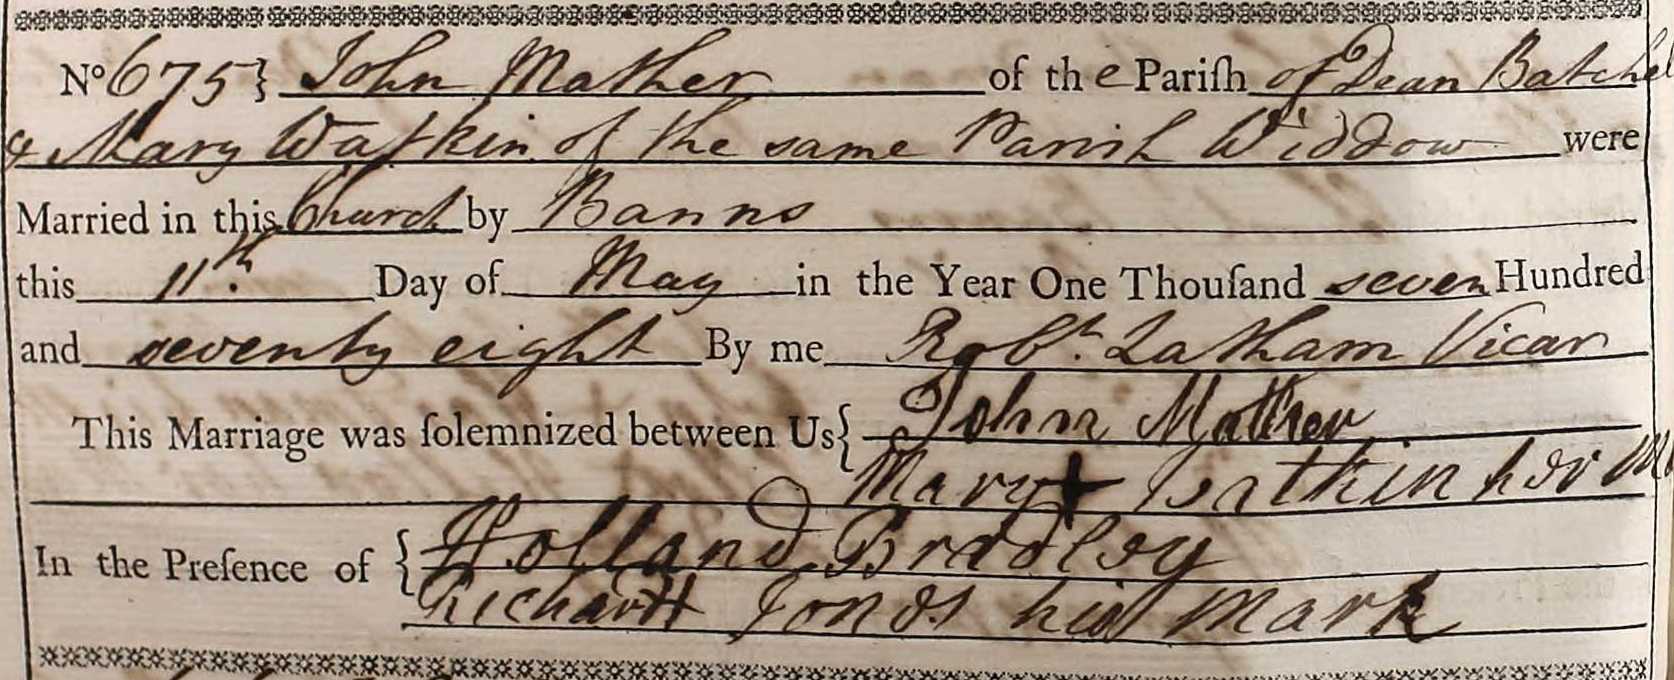 No 675} John Mather of the Pariſh of Dean Batchel
& Mary Watkin of the same Parish Widdow were
Married in this Church by Banns
this 11th. Day of May in the Year One Thouſand seven Hundred
and seventy eight By me Robt. Latham Vicar
This Marriage was ſolemnized between Us { John Mather
Mary + Watkin her M
In the Preſence of { Holland Bradley
Richard Jones his Mark